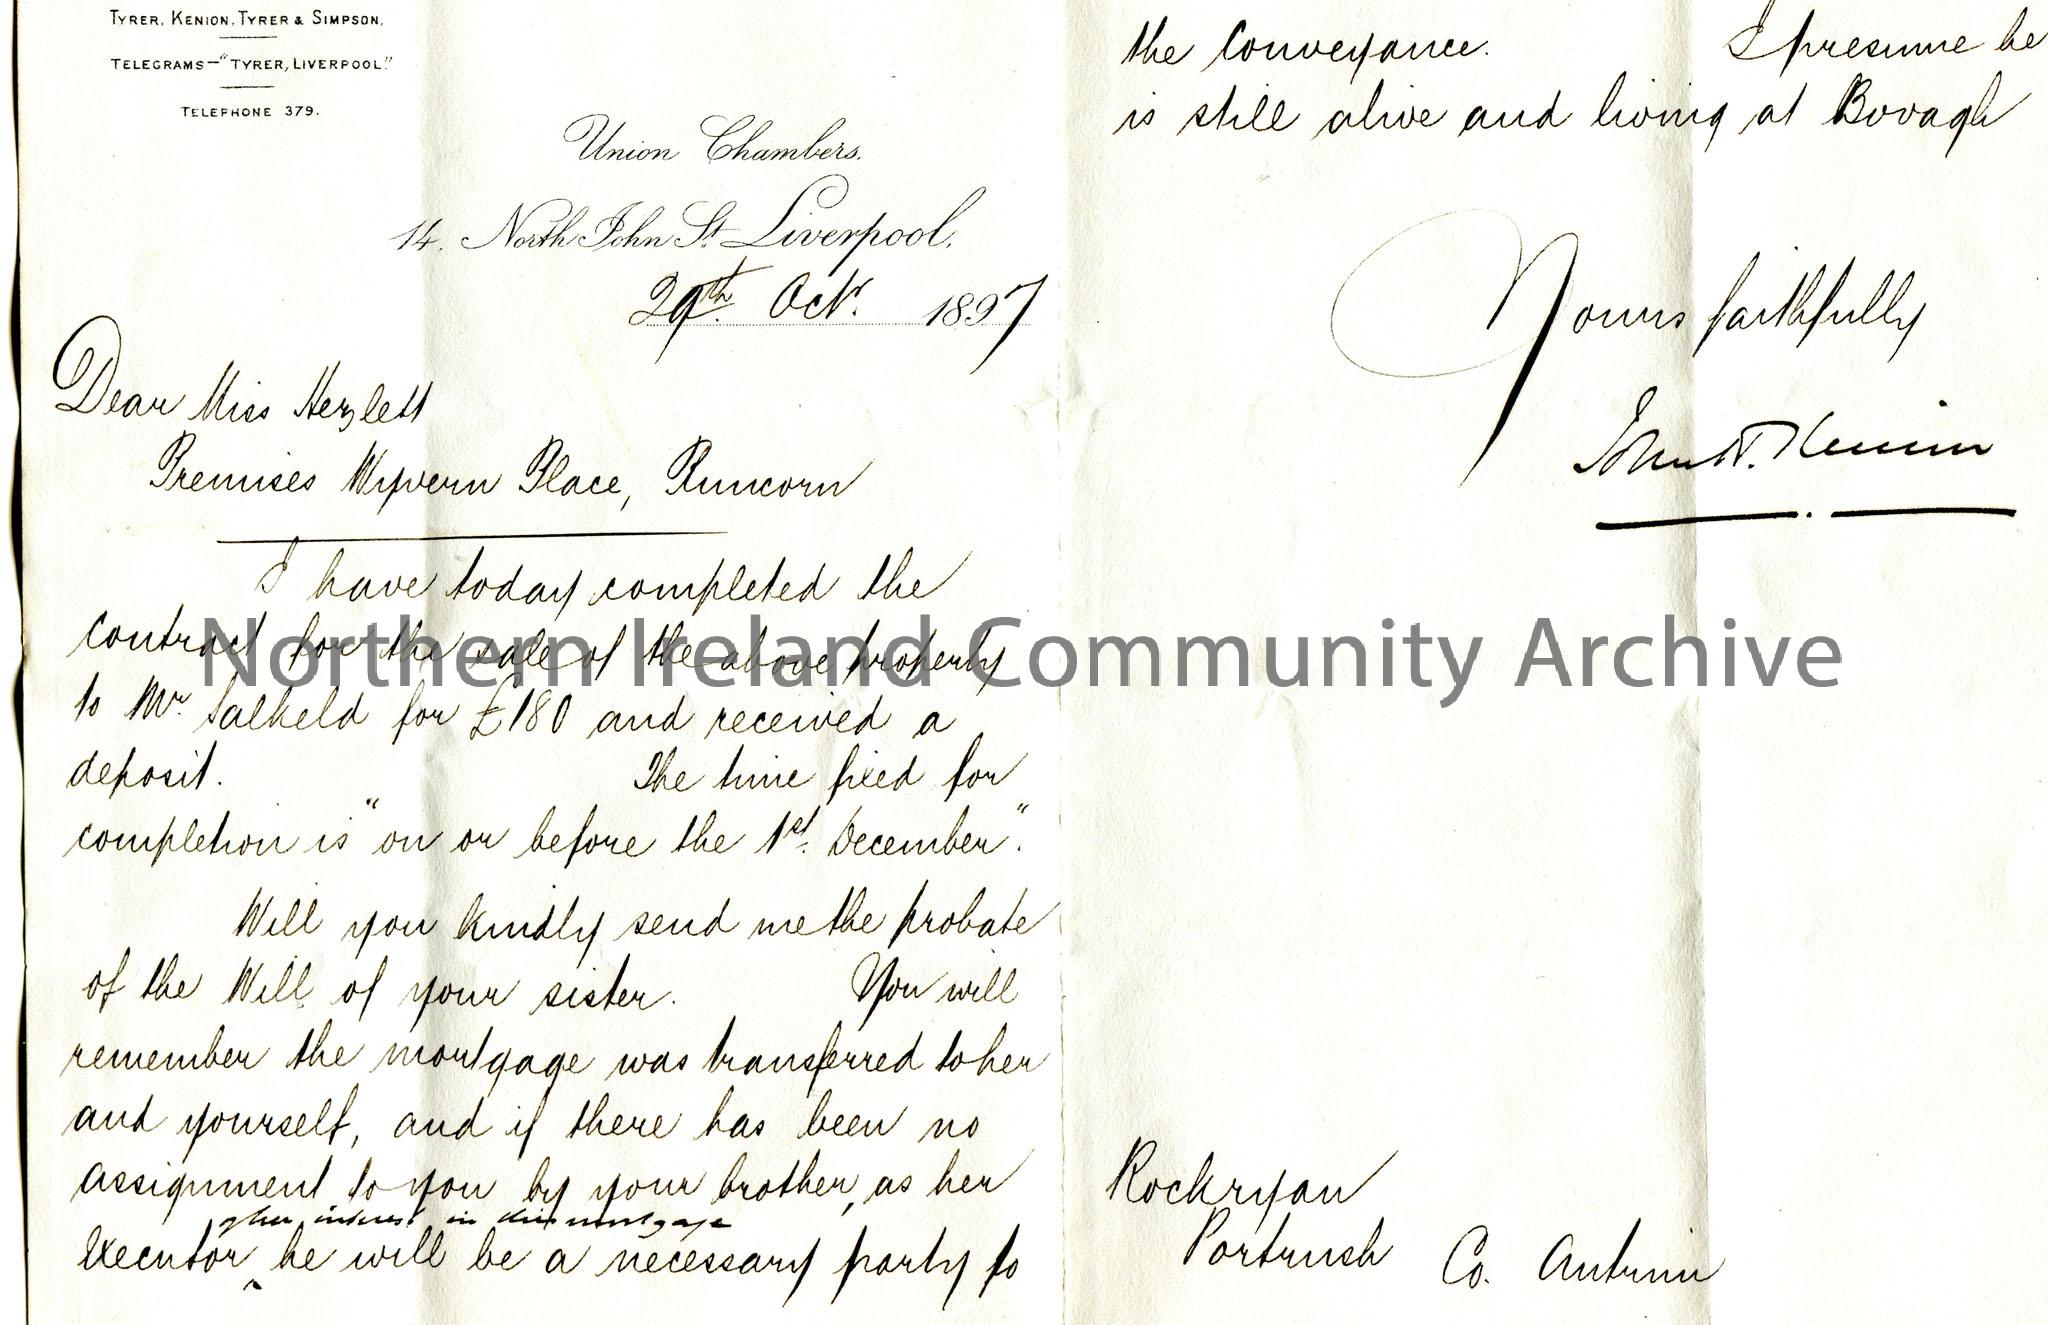 TYRER, KENION, TYRER & SIMPSON.
TELEGRAMS—"TYRER, LIVERPOOL."
TELEPHONE 379.
Union Chambers.
14. North John St. Liverpool.
29th. Octr. 1897
Dear Miss Hezlett
Premises Wyvern Place, Runcorn
I have today completed the
contract for the sale of the above property
to Mr Salkeld for £180 and received a
deposit. The time fixed for
completion is "on or before the 1st. December".
Will you kindly send me the probate
of the Will of your sister. You will
remember the mortgage was transferred to her
and yourself, and if there has been no
assignment to you by your brother, as her
of her interest in this mortgage
Executor ‸ he will be a necessary party to
the Conveyance. I presume he
is still alive and living at Bovagh
Yours faithfully
John N. Kenion
Rockryan
Portrush Co. Antrim
Northern Ireland Community Archive